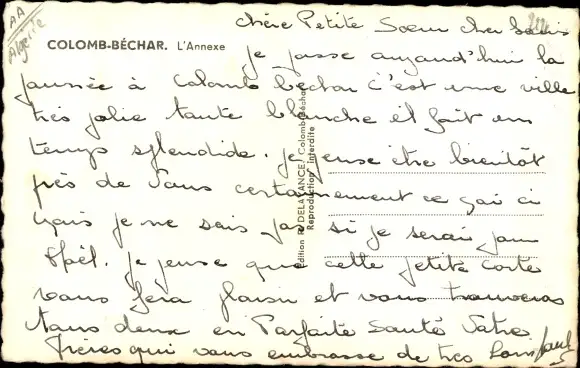 AA
Algérie
chère Petite Soeur cher
COLOMB-BÉCHAR. L'Annexe
je passe aujourd'hui la
journée à Colomb béchar c'est une ville
très jolie toute blanche il fait un
temps splendide. je pense être bientôt
près de Vous certainement ce
mais je ne sais pas si je serai pour
Noël. je pense que cette petite carte
vous fera plaisir et vous trouveras
tous deux en Parfaite Santé Votre
Frères qui vous embrasse de très loin
Paul
Édition R. DELAVANCE, Colomb-Béchar
Reproduction interdite